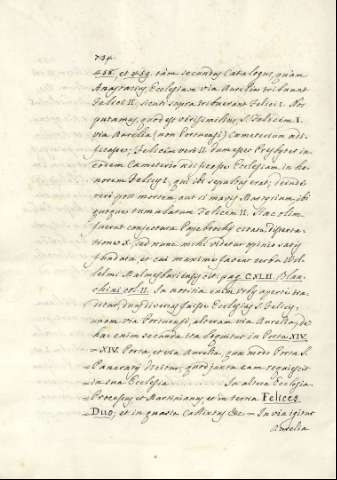 734
456. et 459. tàm secundus Catalogus, quàm
Anastasius Ecclesiam via Aurelia tribuunt
Felici II, sicuti supra tribuerant Felici I. No
putamus, quod est verisimilius, S. Felicem I.
via Aurelia (non Portuensi) Cœmeterium
Felicem verò II. dum esset Presbyter in
eodem Cœmeterio Ecclesiam in ho
norem Felicis I, qui ibi sepultus erat; deinde
verò post mortem, aut si mavis Martyrium, ibi
quoque tumulatum Felicem II. Hæc olim
fuerat conjectura Papebrochij citata Disserta
tione 8; sed nunc mihi videtur opinio satis
fundata, et cui maxime faveat verba Wil
lelmi Malmesburiensis cit. pag. CXLII. Blan
chinus col. II. In notitia enim Urbis apertè tra
ditur, duas diversas fuisse Ecclesias S. Felicis,
unam via Portuensi, alteram via Aurelia, de
hac enim secunda ita loquitur in Porta XIV.
— XIV. Porta, et via Aurelia, quæ modo Porta S.
Pancratij dicitur, quod juxta eam requiescit
in sua Ecclesia ........ In altera Ecclesia
Processus et Martinianus, et in tertia Felices
Duo; et in quarta Callixtus &c. — In via igitur
Aurelia